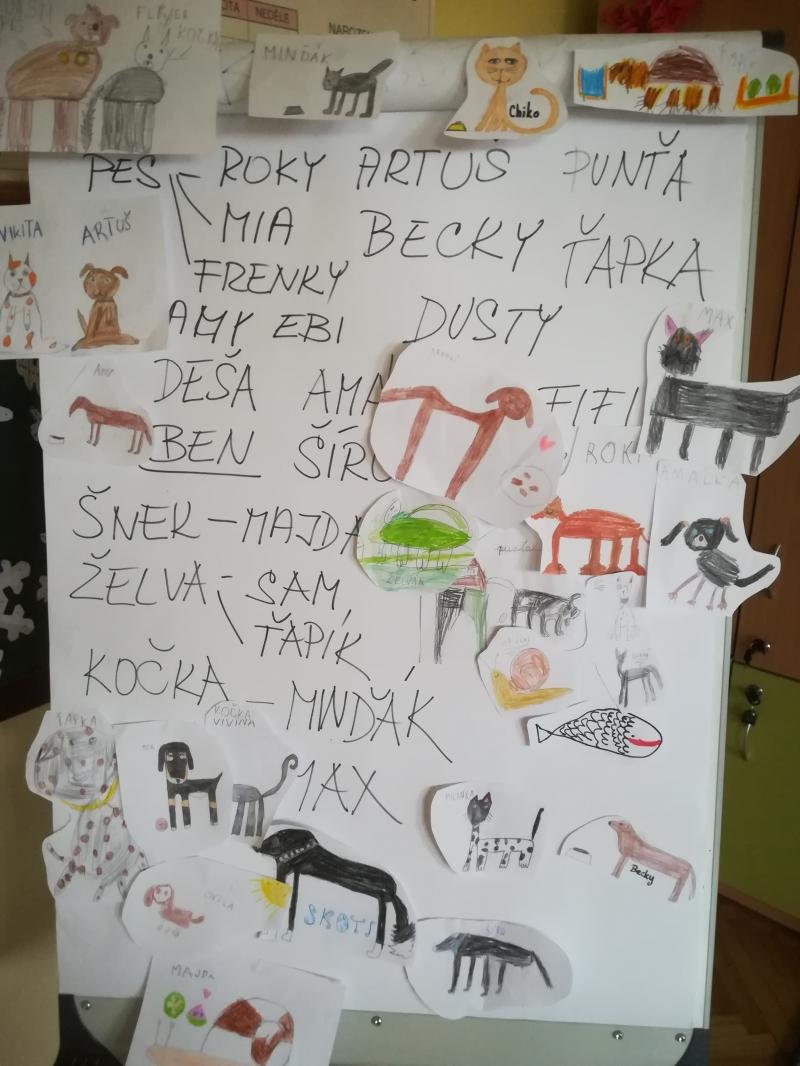 NEDĚLE
MINĎÁK
Chiko
PES - ROKY ARTUŠ PUNŤA
MIA BECKY ŤAPKA
FRENKY
AMY EBI DUSTY
DEŠA AMÁ FIFI
BEN ŠÍR
ŠNEK - MAJDA
ŽELVA - SAM,
ŤAPÍK
KOČKA - MINĎÁK
MAX
VIKITA ARTUŠ
MAX
ROKY
AMÁLKA
ŽELVA
ŤAPKA
KOČKA
VIVINA
MILINKA
Becky
SKOTI
MAJDA